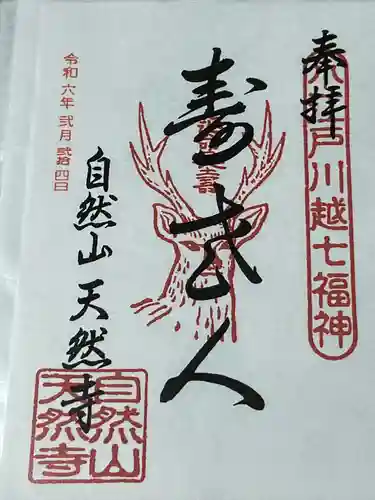 奉拝
小江戸川越七福神
寿老人
自然山天然寺
自然山
天然寺
令和六年弐月弐拾四日